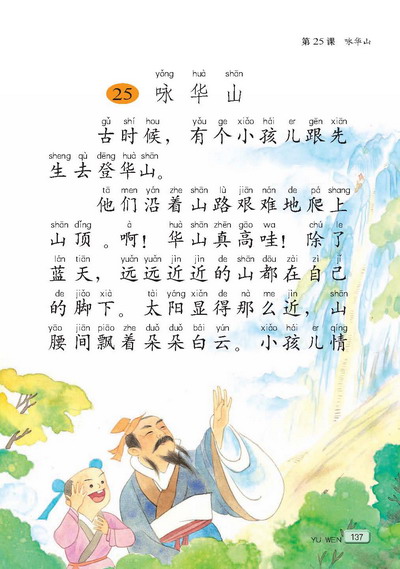 第25课 咏华山
yǒng huà shān
25 咏 华 山
gǔ shí hou yǒu ge xiǎo hái er gēn xiān
古时候，有个小孩儿跟先
sheng qù dēng huà shān
生去登华山。
tā men yán zhe shān lù jiān nán de pá shang
他们沿着山路艰难地爬上
shān dǐng ā huà shān zhēn gāo wa chú le
山顶。啊！华山真高哇！除了
lán tiān yuǎn yuǎn jìn jìn de shān dōu zài zì jǐ
蓝天，远远近近的山都在自己
de jiǎo xià tài yáng xiǎn de nà me jìn shān
的脚下。太阳显得那么近，山
yāo jiān piāo zhe duǒ duǒ bái yún xiǎo hái er qíng
腰间飘着朵朵白云。小孩儿情
YU WEN 137